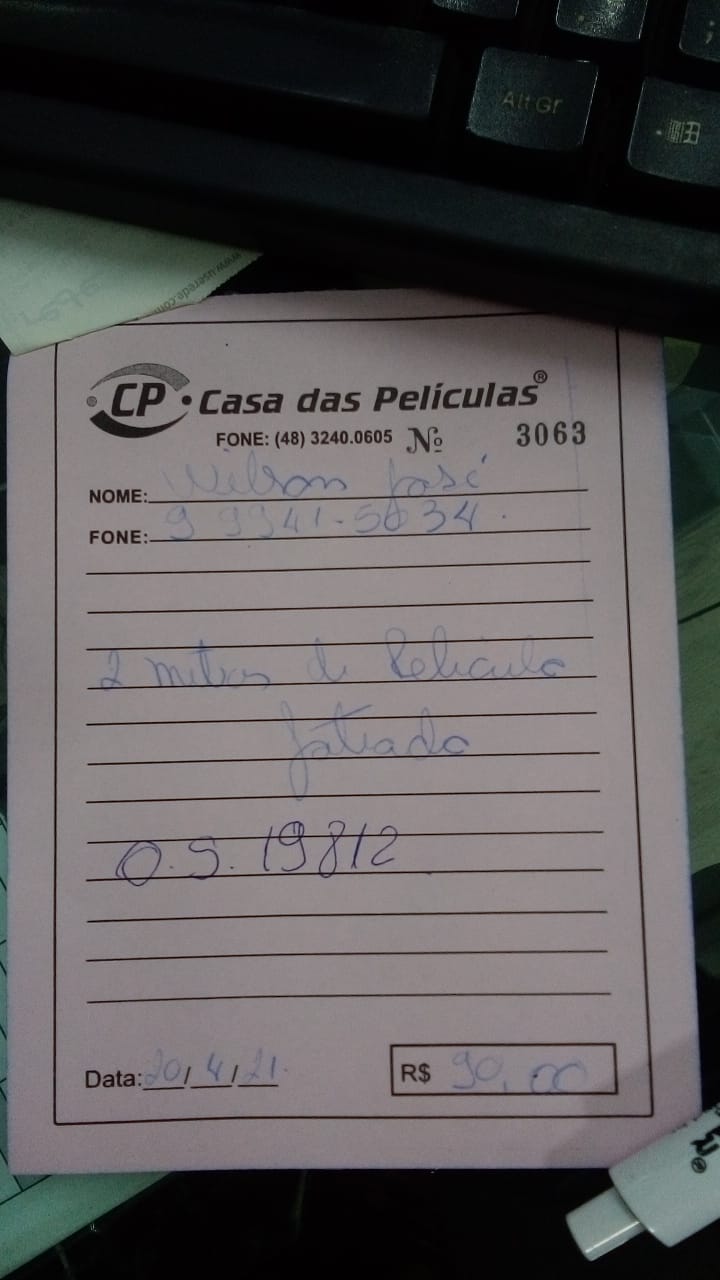 Alt Gr
www.userede.com
CP Casa das Películas®
FONE: (48) 3240.0605 Nº 3063
NOME: Wilson José
FONE: 9 9941-5634.
2 metros de Película
Jateado
O.S. 19812
Data: 20/4/21
R$ 90,00